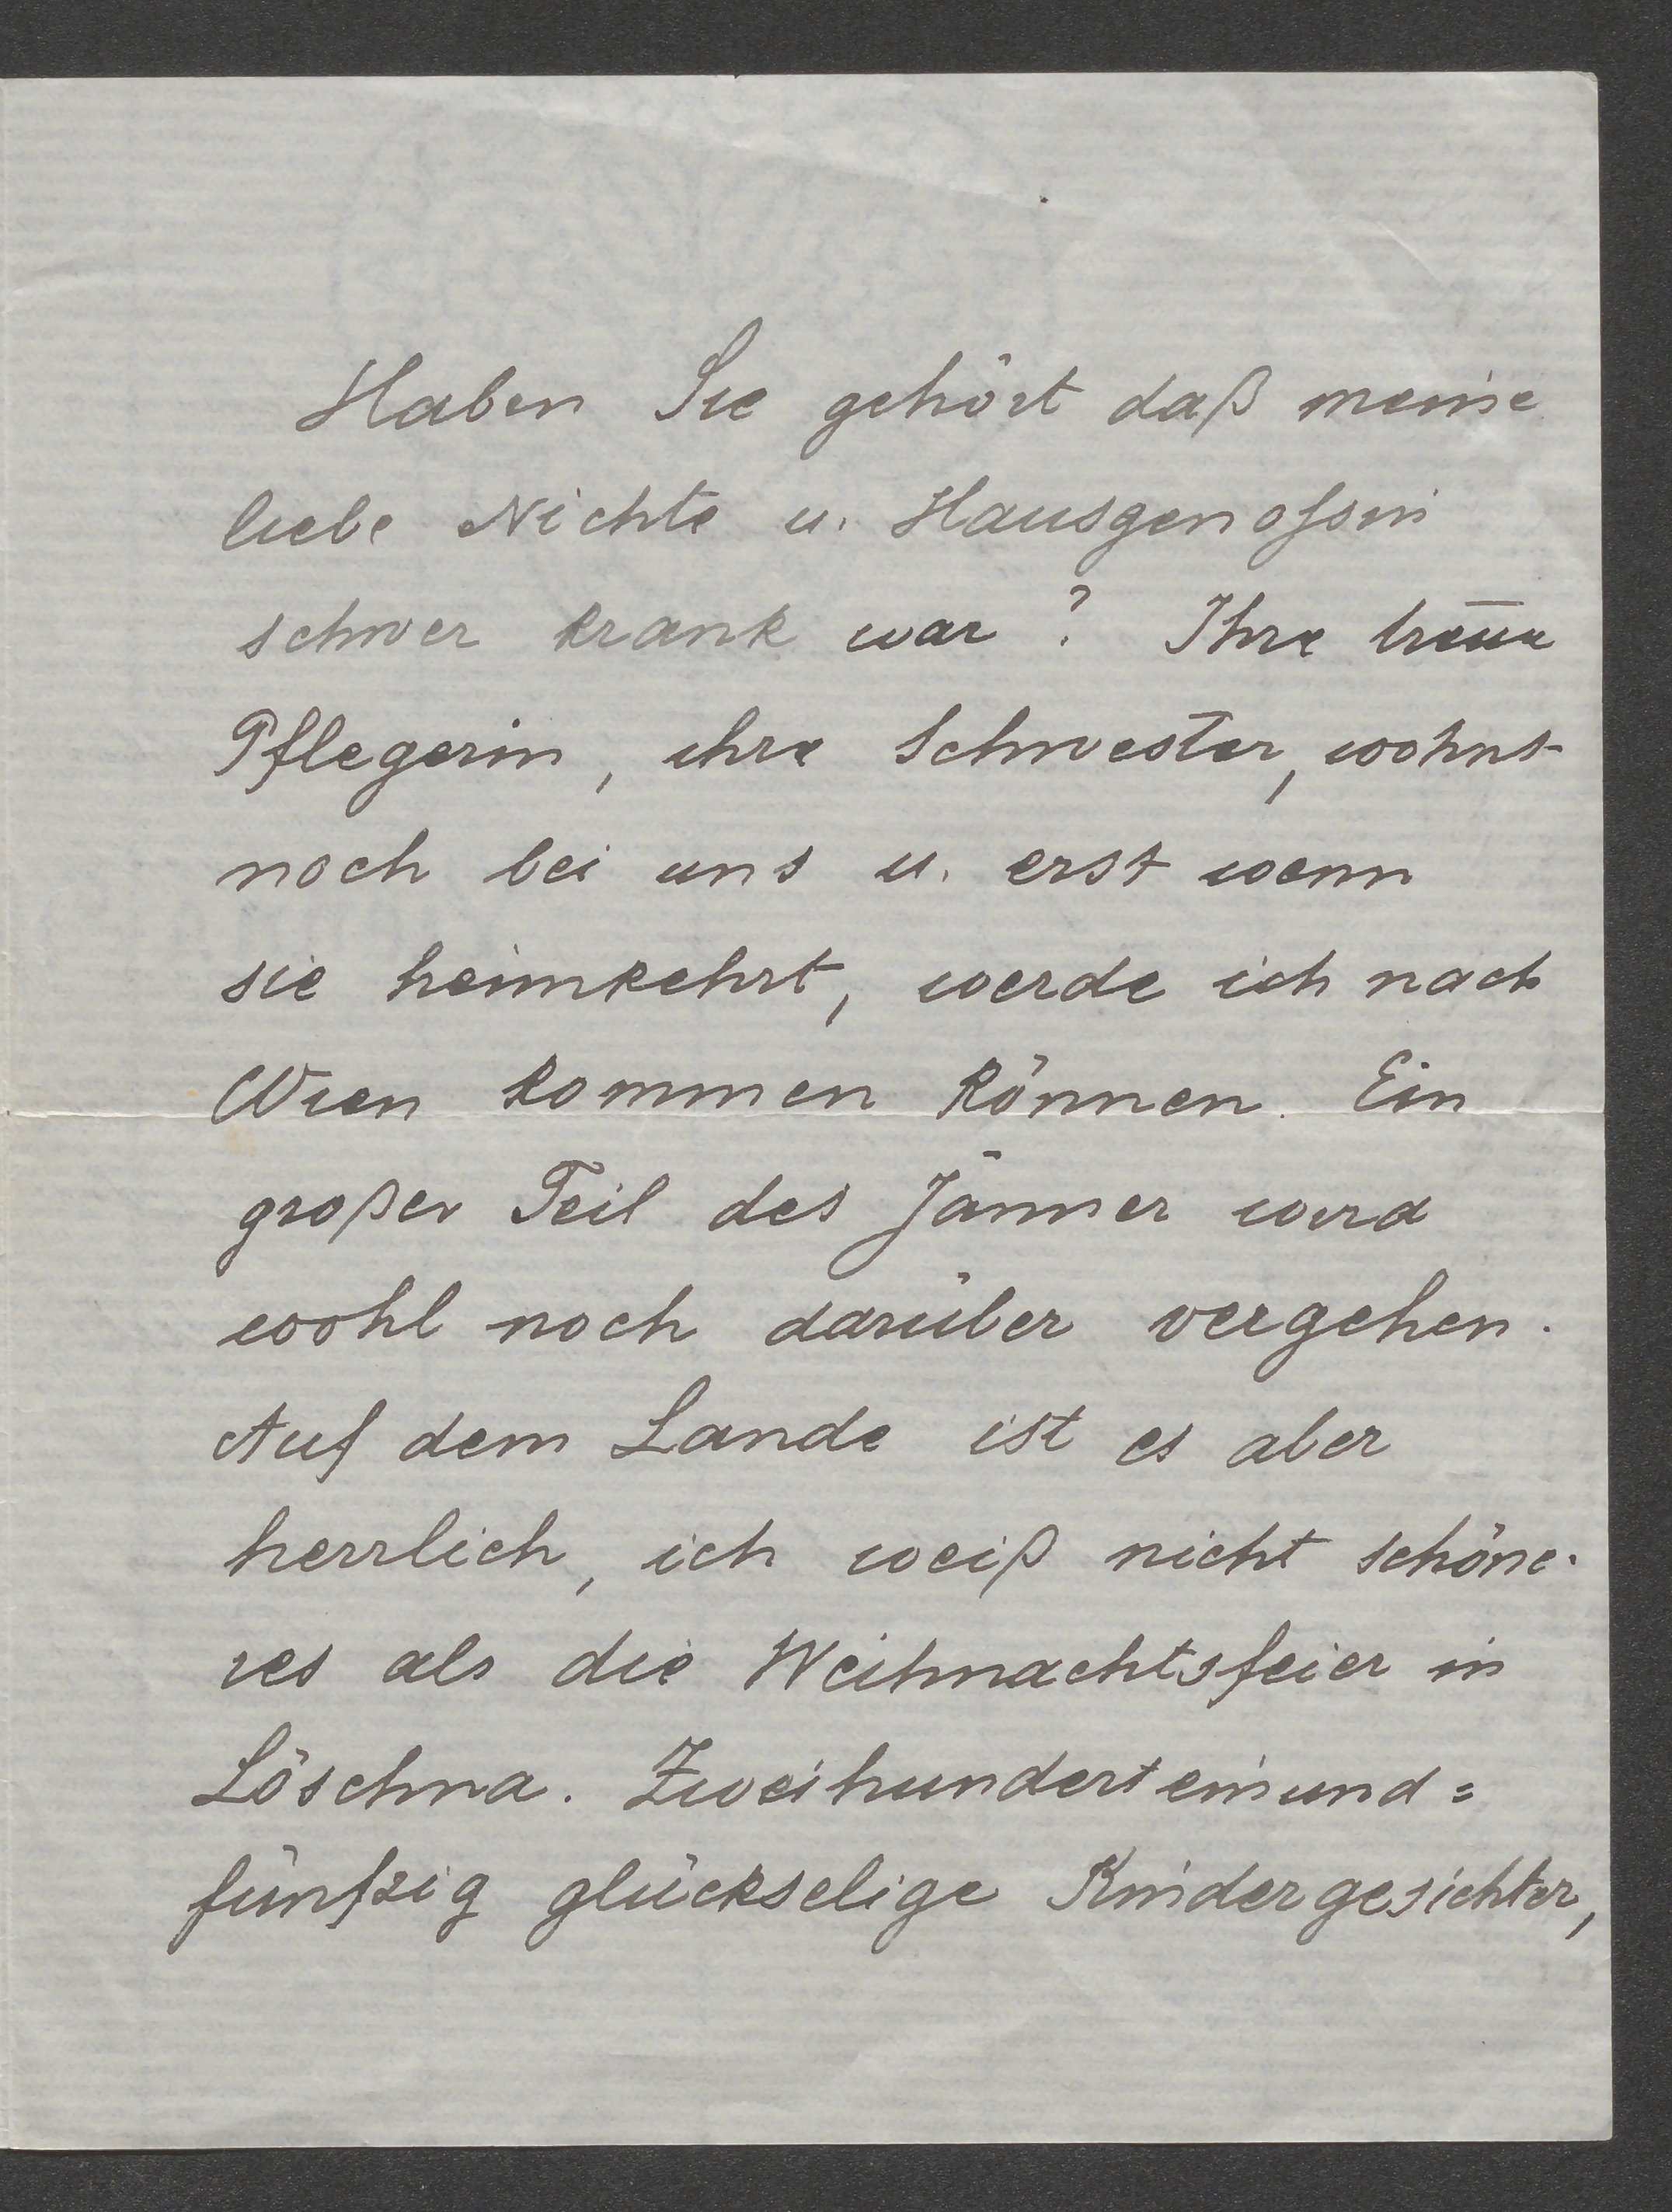 Haben Sie gehört daß meine
liebe Nichte u. Hausgenossin
schwer krank war? Ihre treue
Pflegerin, ihre Schwester, wohnt
noch bei uns u. erst wenn
sie heimkehrt, werde ich nach
Wien kommen können. Ein
großer Teil des Jänner wird
wohl noch darüber vergehen.
Auf dem Lande ist es aber
herrlich, ich weiß nicht schöne-
res als die Weihnachtsfeier in
Löschna. Zweihunderteinund=
fünfzig glückselige Kindergesichter,